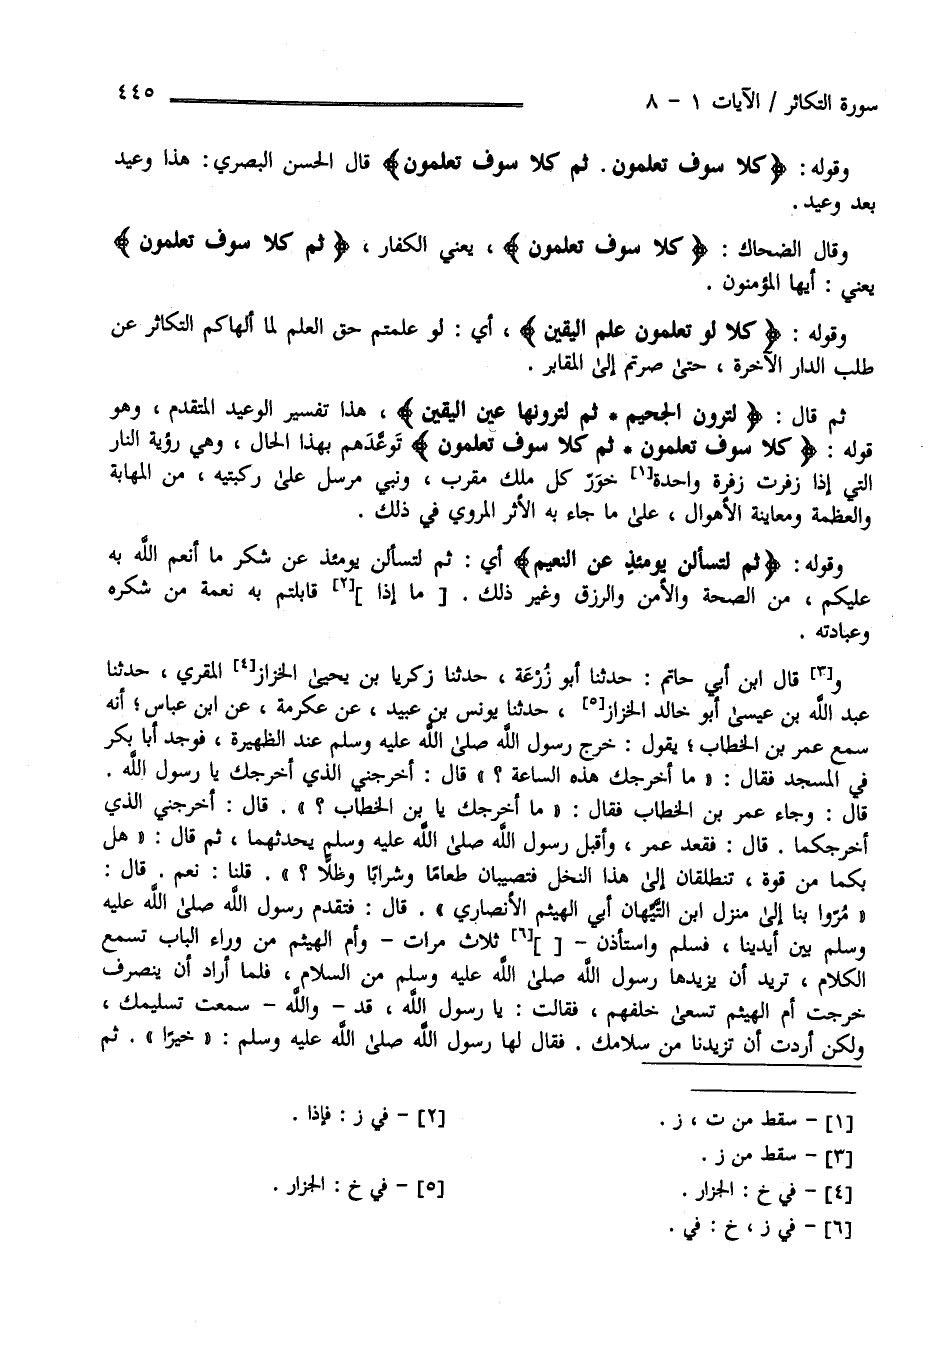 سورة التكاثر / الآيات ١ - ٨ ٤٤٥
وقوله : ﴿ كلا سوف تعلمون . ثم كلا سوف تعلمون ﴾ قال الحسن البصري : هذا وعيد
بعد وعيد .
وقال الضحاك : ﴿ كلا سوف تعلمون ﴾ ، يعني الكفار ، ﴿ ثم كلا سوف تعلمون ﴾
يعني : أيها المؤمنون .
وقوله : ﴿ كلا لو تعلمون علم اليقين ﴾ ، أي : لو علمتم حق العلم لما ألهاكم التكاثر عن
طلب الدار الآخرة ، حتىٰ صرتم إلىٰ المقابر .
ثم قال : ﴿ لترون الجحيم * ثم لترونها عين اليقين ﴾ ، هذا تفسير الوعيد المتقدم ، وهو
قوله : ﴿ كلا سوف تعلمون * ثم كلا سوف تعلمون ﴾ تَوعَّدَهم بهذا الحال ، وهي رؤية النار
التي إذا زفرت زفرة واحدة[١] خوَرّ كل ملك مقرب ، ونبي مرسل علىٰ ركبتيه ، من المهابة
والعظمة ومعاينة الأهوال ، علىٰ ما جاء به الأثر المروي في ذلك .
وقوله : ﴿ ثم لتسألن يومئذٍ عن النعيم ﴾ أي : ثم لتسألن يومئذ عن شكر ما أنعم اللَّه به
عليكم ، من الصحة والأمن والرزق وغير ذلك . [ ما إذا ][٢] قابلتم به نعمة من شكره
وعبادته .
و[٣] قال ابن أبي حاتم : حدثنا أبو زُرْعَة ، حدثنا زكريا بن يحيىٰ الخزاز[٤] المقري ، حدثنا
عبد اللَّه بن عيسىٰ أبو خالد الخزاز[٥] ، حدثنا يونس بن عبيد ، عن عكرمة ، عن ابن عباس ؛ أنه
سمع عمر بن الخطاب ؛ يقول : خرج رسول اللَّه صلىٰ اللَّه عليه وسلم عند الظهيرة ، فوجد أبا بكر
في المسجد فقال : « ما أخرجك هذه الساعة ؟ » قال : أخرجني الذي أخرجك يا رسول اللَّه .
قال : وجاء عمر بن الخطاب فقال : « ما أخرجك يا بن الخطاب ؟ » . قال : أخرجني الذي
أخرجكما . قال : فقعد عمر ، وأقبل رسول اللَّه صلىٰ اللَّه عليه وسلم يحدثهما ، ثم قال : « هل
بكما من قوة ، تنطلقان إلىٰ هذا النخل فتصيبان طعامًا وشرابًا وظلًّا ؟ » . قلنا : نعم . قال :
« مُرّوا بنا إلىٰ منزل ابن التَّيِّهان أبي الهيثم الأنصاري » . قال : فتقدم رسول اللَّه صلىٰ اللَّه عليه
وسلم بين أيدينا ، فسلم واستأذن - [ ][٦] ثلاث مرات - وأم الهيثم من وراء الباب تسمع
الكلام ، تريد أن يزيدها رسول اللَّه صلىٰ اللَّه عليه وسلم من السلام ، فلما أراد أن ينصرف
خرجت أم الهيثم تسعىٰ خلفهم ، فقالت : يا رسول اللَّه ، قد - واللَّه - سمعت تسليمك ،
ولكن أردت أن تزيدنا من سلامك . فقال لها رسول اللَّه صلىٰ اللَّه عليه وسلم : « خيرًا » . ثم
[١] - سقط من ت ، ز . [٢] - في ز : فإذا .
[٣] - سقط من ز .
[٤] - في خ : الجزار . [٥] - في خ : الجزار .
[٦] - في ز ، خ : في .